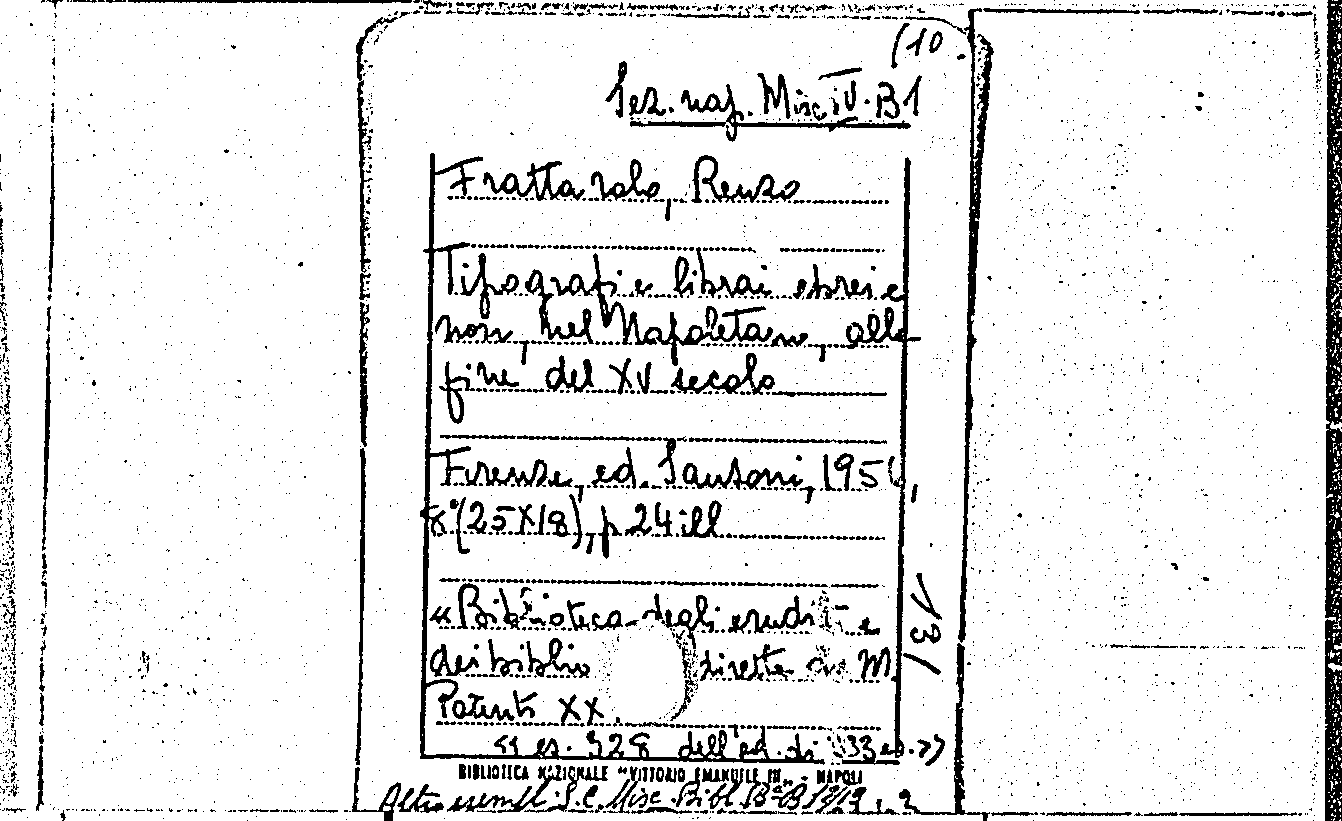 (10.
Sez. nap. Misc IV. B1
Frattarolo, Renzo
Tipografi e librai ebrei e
non, nel Napoletano, alla
fine del XV secolo
Firenze, ed. Sansoni, 195
8°(25X18), p 24 ill
«Biblioteca degli eruditi e
dei biblio dirette da M.
Parenti XX.
«es. 328 dell'ed. di 333 es.»
131
BIBLIOTECA NAZIONALE "VITTORIO EMANUELE III" - NAPOLI
Altro esempl. S.C. Misc. Bibl.